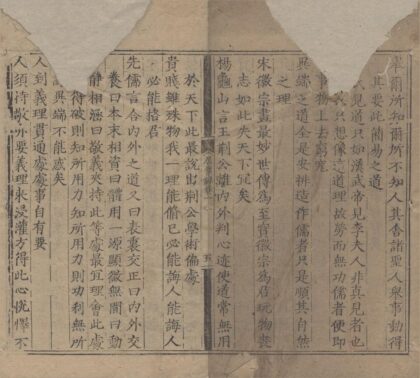 舉爾所知爾所不知人其舍諸聖人舉事動得
其要此簡易之道
見道只如漢武帝見李夫人非真見者也
只想像這道理故勞而無功儒者便即
事物上去窮究
異端之道全是安排造作儒者只是順其自然
之理
宋徽宗畫最妙世傳為至寶徽宗為君玩物喪
志如此失天下宜矣
楊龜山言王荆公離內外判心迹使道常無用
於天下此最說出荆公學術偏處
貴賤雖殊物我一理能脩己必能誨人能誨人
必能搘君
先儒言合內外之道又曰表裏交正曰內外交
養曰本末相資曰體用一源顯微無間曰動
靜相涵曰敬義夾持此等處最宜理會此處
得破則知所用力知所用力則功利無所
異端不能惑矣
人到義理貫通處處事自有要
人須持敬外要義理來浸灌方得此心悅懌不